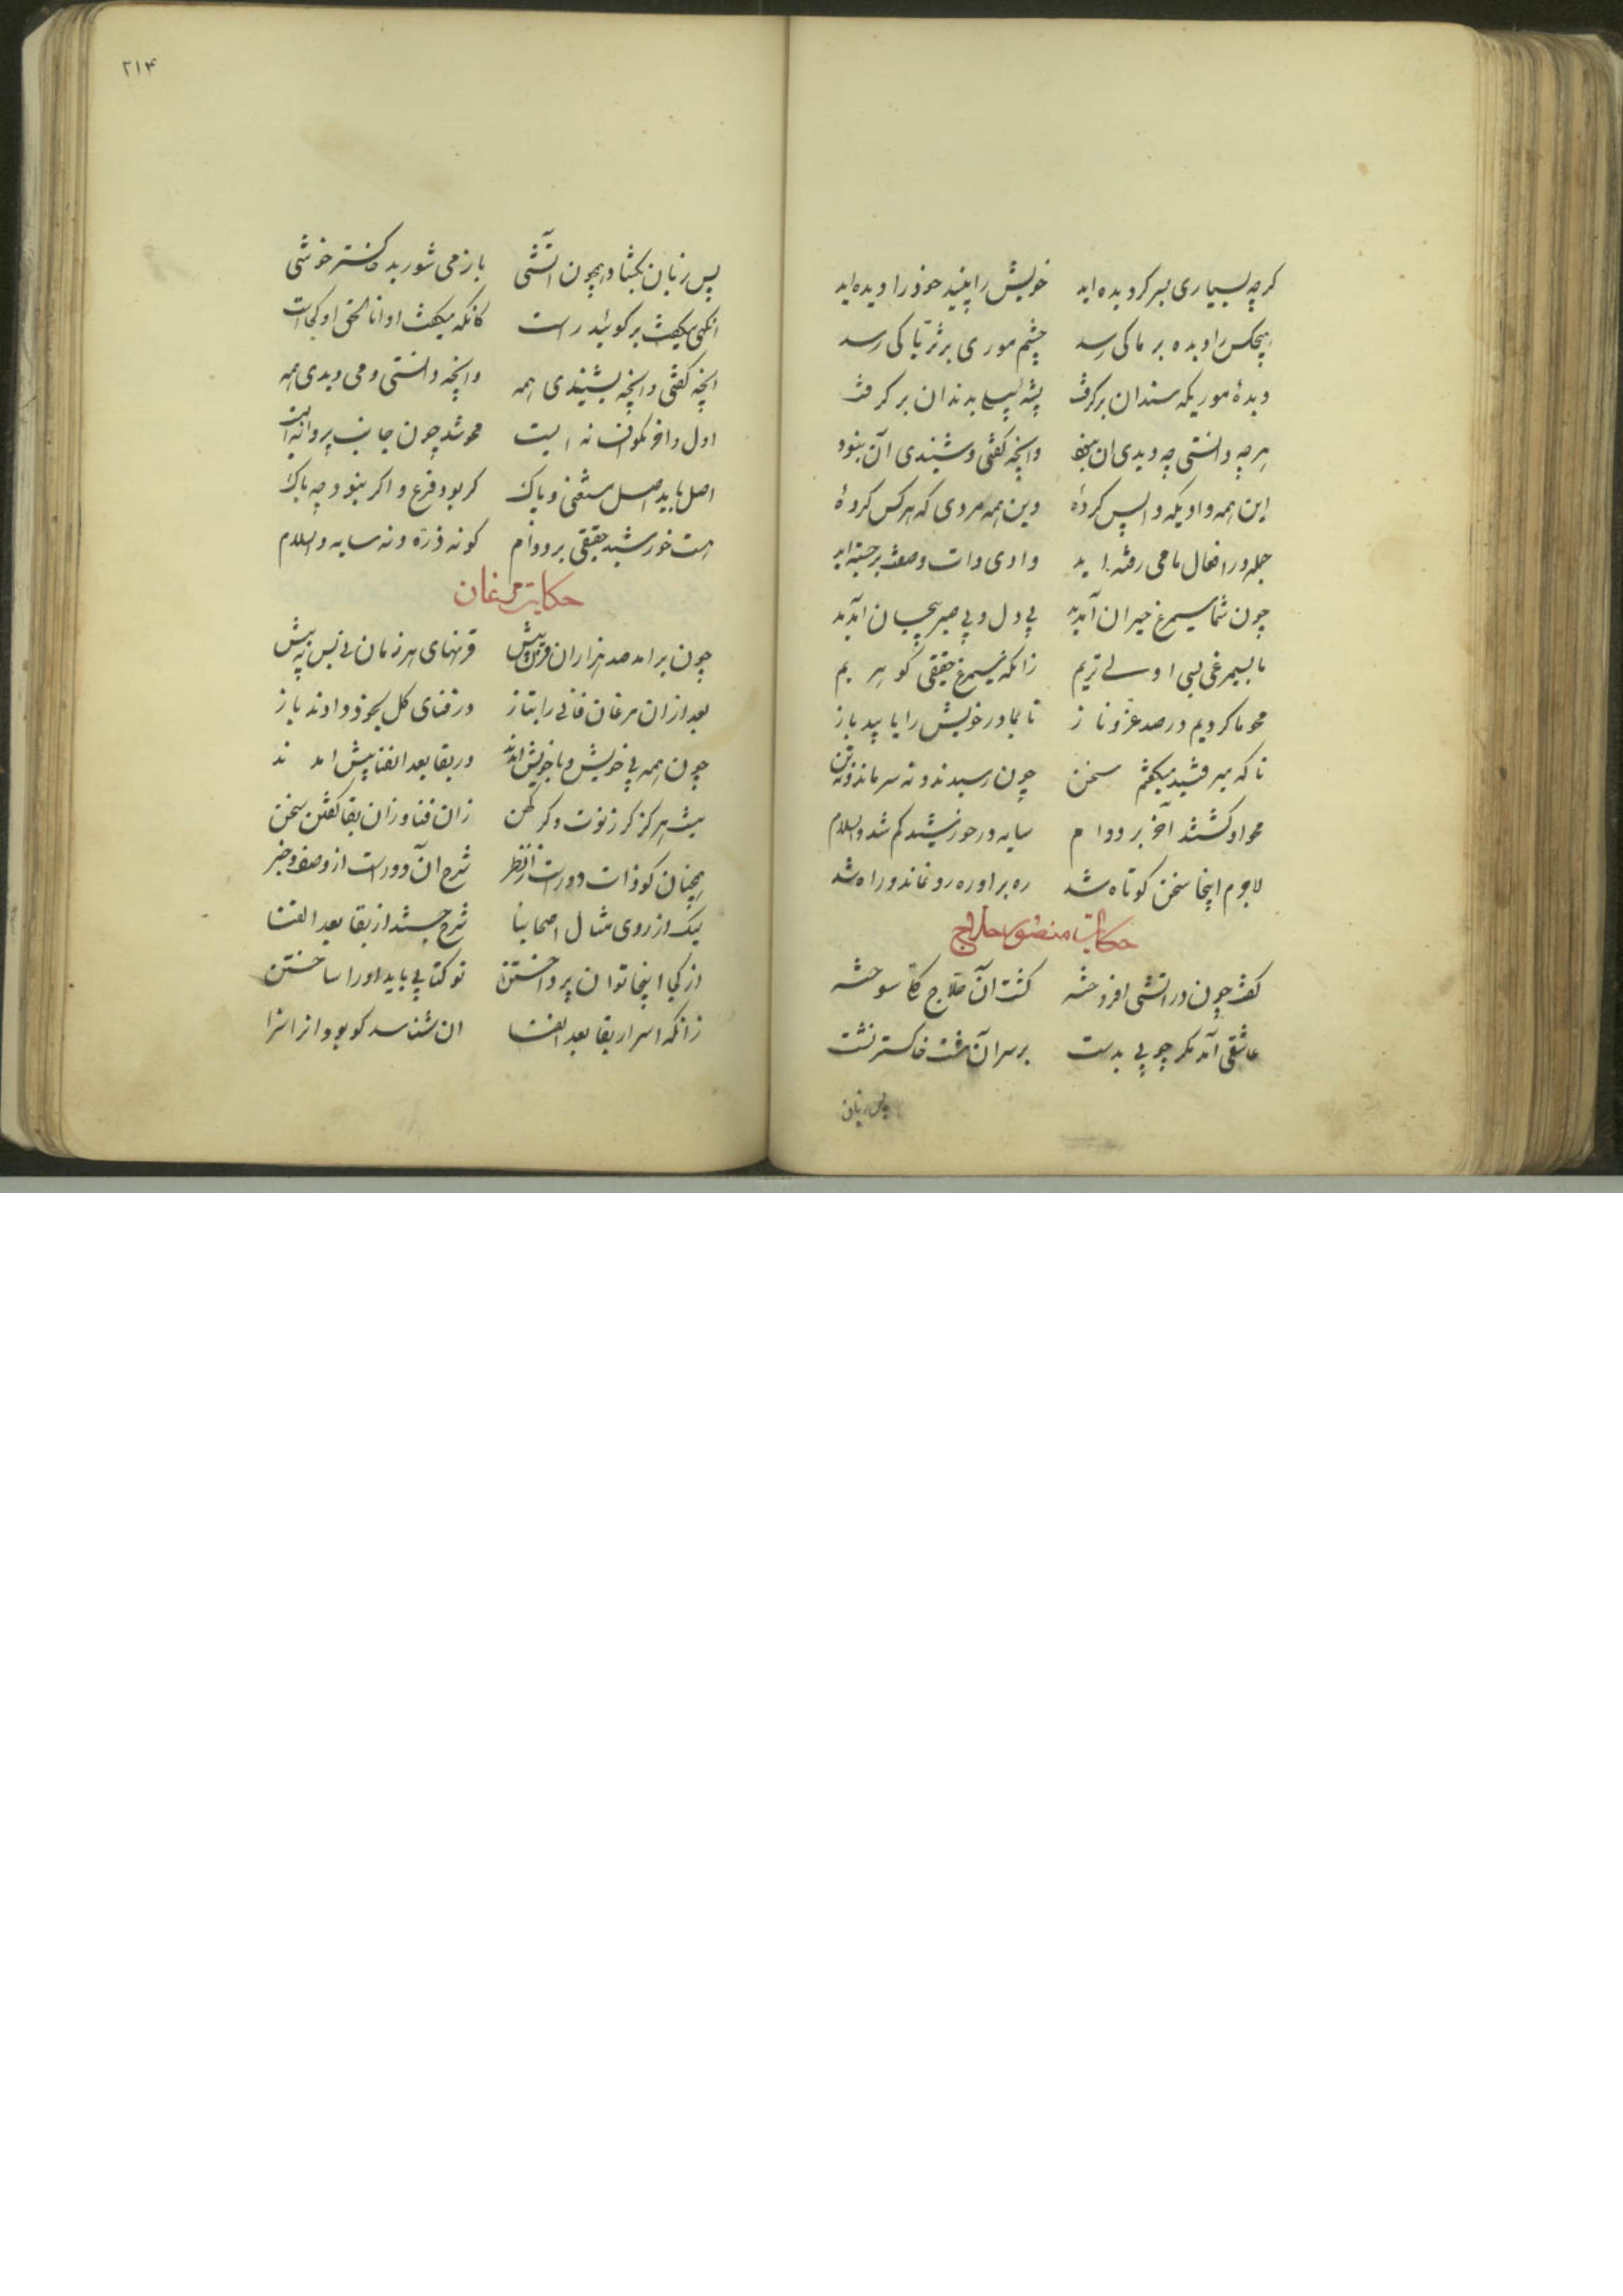 کرچه بسیاری بسر کردیده اید خویش را بینید خود را دیده اید
هیچکس را دیده بر ما کی رسد چشم موری بر ثریا کی رسد
دیدهٔ موریکه سندان برکرفت پشه پیلی بدندان برکرفت
هرچه دانستی چه دیدی ان نبود وانچه کفتی و شنیدی آن نبود
این همه وادیکه واپس کردهٔ وین همه مردی که هرکس کردهٔ
جمله در افعال ما می رفته اید وادی ذات وصفت برجسته اید
چون شما سیمرغ حیران آمدید بی دل و بی صبر بیجان آمدید
ما بسیمرغی بسی اولی تریم زانکه سیمرغ حقیقی کوهریم
محو ما کردیم در صد عز و ناز تا بما در خویش را یابید باز
تا که میرفتند میکفتم سخن چون رسیدند و نه سر ماند و نه بن
محو او کشتند آخر بر دوام سایه در خورشید کم شد والسلام
لاجرم اینجا سخن کوتاه شد ره بر اوره رو نماند و راه شد
حکایت منصور حلاج
کفت چون در اتشی افروخته کشت ان حلاج کلی سوخته
عاشقی آمد مکر چوبی بدست بر سر آن طشت خاکستر نشست
پس زبان
۲۱۴
پس زبان بکشاد همچون آتشی باز می شورید خاکستر خوشی
انکهی میکفت برکوئید راست کانکه میکفت او انا الحق او کجاست
انچه کفتی وانچه بشنیدی همه وانچه دانستی و می دیدی همه
محو شد چون جایت
اصل باید اصل مستغنی و پاک کر بود فرع و اکر نبود چه باک
هست خورشید حقیقی بر دوام کو نه ذره و نه سایه والسلام
حکایت مرغان
چون برامد صد هزاران قرن پیش قرنهای بر زمان نی پس نه پیش
بعد ازان مرغان فانی را بناز در فنای کل بخود دادند باز
چون همه بی خویش و با خویش امدند در بقا بعد الفنا پیش امدند
نیست هرکز کر زنوست و کر کهن زان فنا و زان بقا کفتن سخن
همچنان کو ذات دورست از نظر شرح ان دورست از وصف و خبر
لیک از روی مثال اصحابنا شرح جستند از بقا بعد الفنا
ان کجا اینجا توان پرداختن نو کتابی باید اورا ساختن
زانکه اسرار بقا بعد الفنا ان شناسد کو بود انرا سزا